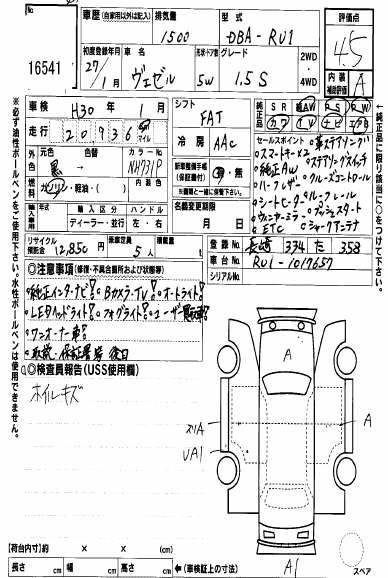 No
16541
車歴 (自家用以外は記入)
排気量
1500
型式
DBA-RU1
評価点
4.5
初度登録年月
27/1月
車名
ヴェゼル
ドア形状
5W
グレード
1.5 S
2WD
4WD
内装
補助評価
A
車検
H30年 1月
シフト
FAT
純正品
SR
AW
PS
PW
カワ
TV
ナビ
エアB
走行
20936
Km
マイル
冷房
AAC
セールスポイント
革ステアリング
スマートキー×2
ステアリングスイッチ
純正AW
クルーズコントロール
ハーフレザー
シートヒータ
ルーフレール
ウィンカーミラー
プッシュスタート
ETC
シャークアンテナ
外色
元色
黒
色替
カラーNo
NH731P
内装色
燃料
ガソリン・軽油・( )
新車整備手帳
(保証書付)
有・無
※書類と一緒に保管下さい
輸入車
輸入区分
ディーラー・並行
ハンドル
左・右
名義変更期限
月 日
リサイクル預託金
12,850円
乗車定員
5人
積載量
t
登録No
長崎 334 た 358
車台No
RU1-1017657
シリアルNo
◎注意事項 (修復・不具合箇所および状態等)
純正インターナビ!
Bカメラ・TV!
オートライト!
LEDヘッドライト!
フォグライト!
ユーザー買取車!
ワンオーナー車!
取説・保証書等 後日
◎検査員報告(USS使用欄)
ホイルキズ
A
A
スリA
UA1
A1
スペア
[荷台内寸] × × (cm)
長さ cm 幅 cm 高さ cm ←(車検証上の寸法)
※必ず油性ボールペンをご使用下さい。水性ボールペンは使用できません。
純正品に限り該当に○をつけて下さい。